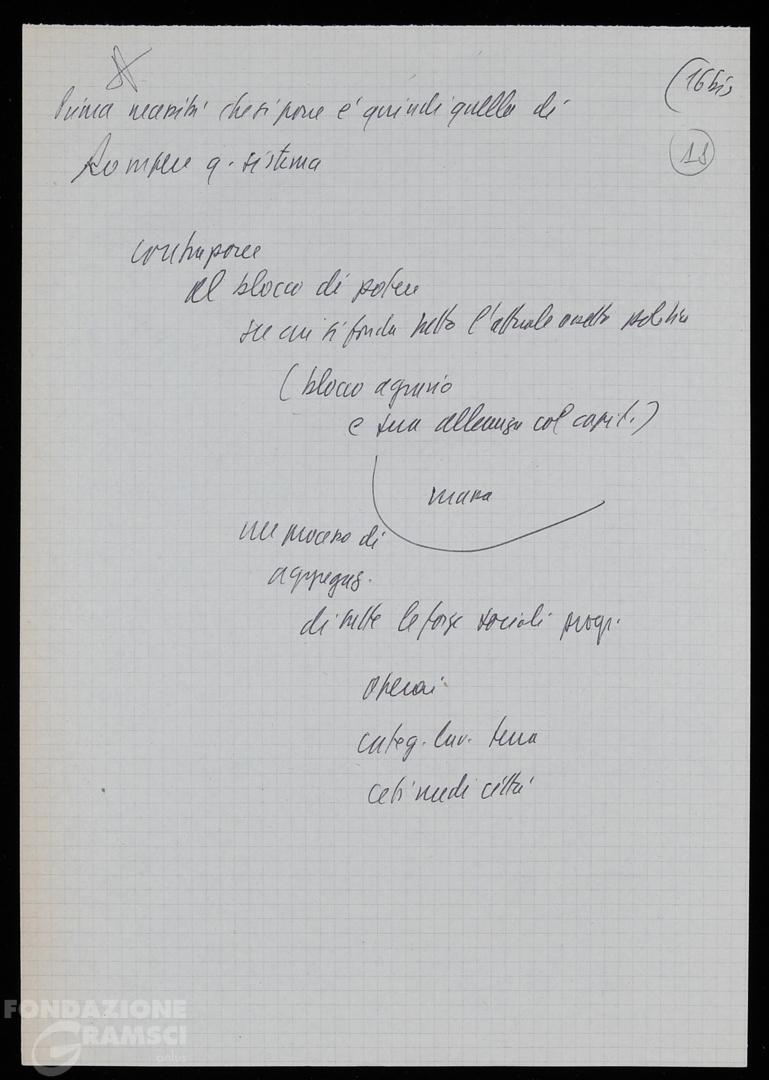 (16 bis
18
Prima necessità che si pone è quindi quella di
Rompere q. sistema
contrapporre
al blocco di potere
su cui si fonda tutto l'attuale assetto politico
(blocco agrario
e sua alleanza col capit.)
un processo di
aggregaz.
di tutte le forze sociali progr.
operai
categ. lav. terra
ceti medi città
FONDAZIONE
GRAMSCI
onlus